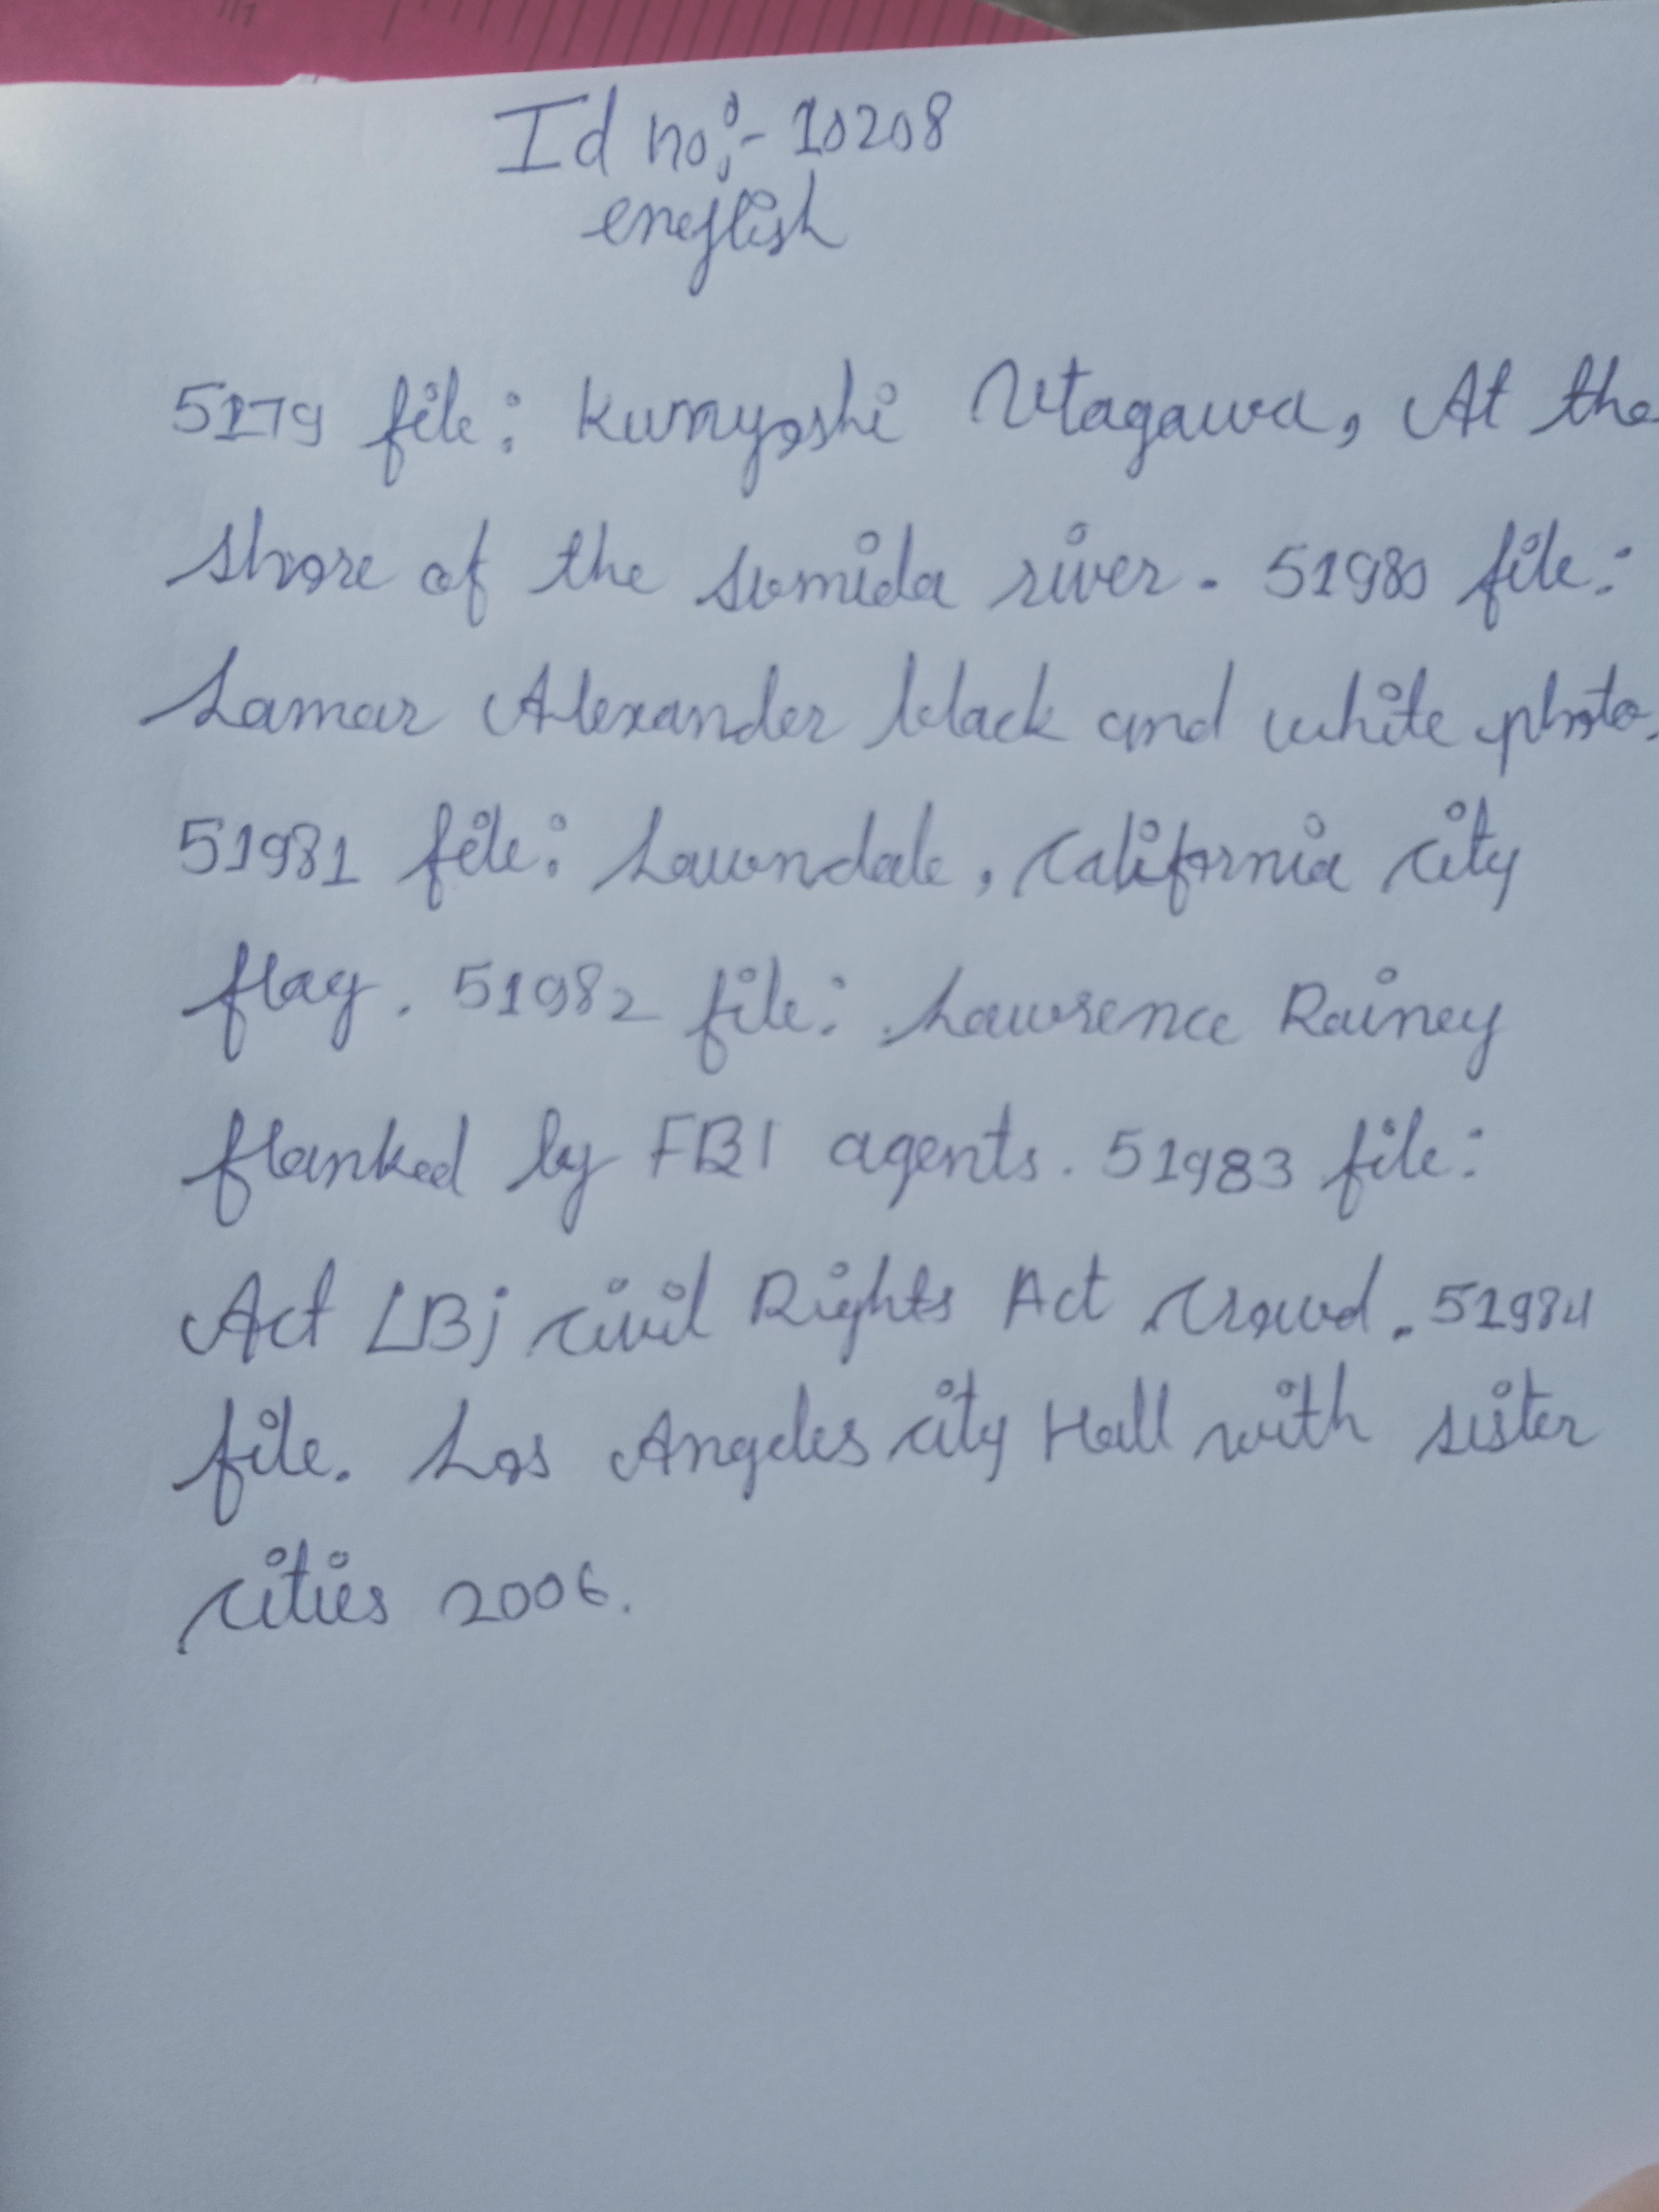 Id no:- 10208
english
5179 file: Kunyoshi Utagawa, At the
shore of the sumida river. 51980 file:
Lamar Alexander black and white photo.
51981 file: Lawndale, California city
flag. 51982 file: Lawrence Rainey
flanked by FBI agents. 51983 file:
Act LBj civil Rights Act crowd. 51984
file. Los Angeles city Hall with sister
cities 2006.